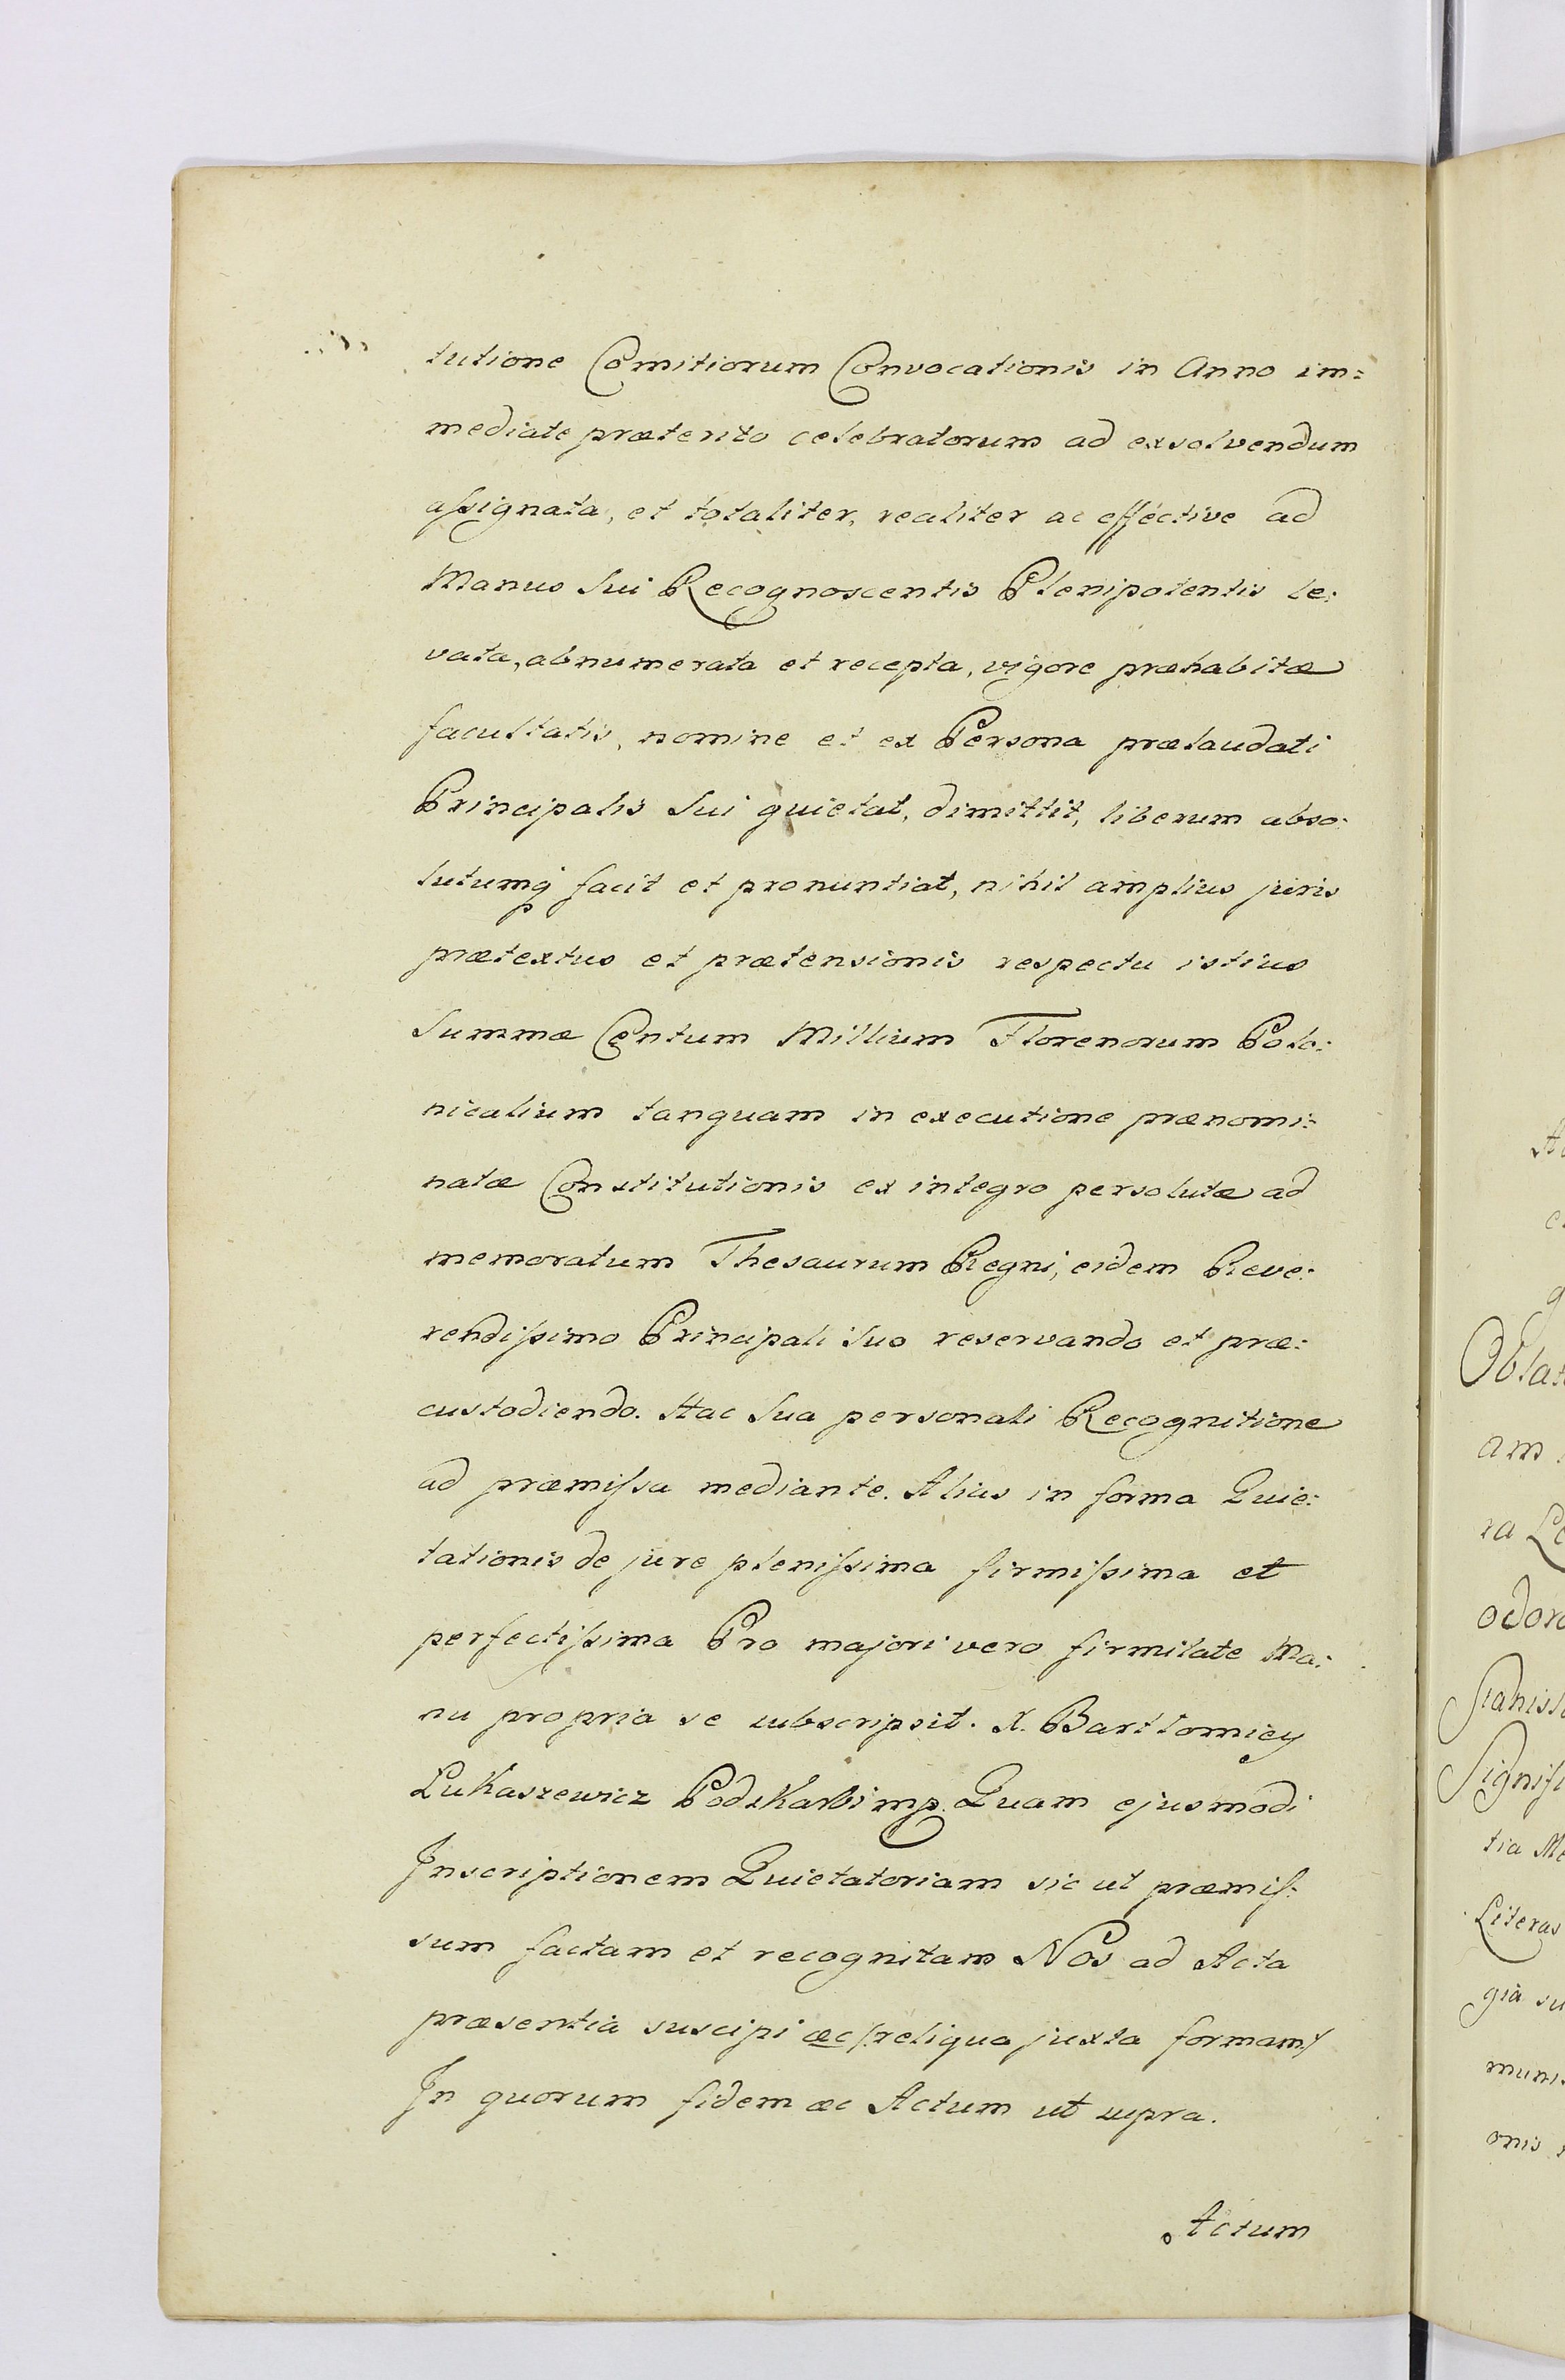 tutione Comitiorum Convocationis in Anno im=
mediate præterito celebratorum ad exsolvendum
aſsignata, et totaliter, realiter ac efféctive ad
Manus Sui Recognoscentis Plenipotentis le:
vata, abnumerata et recepta, vigore præhabitæ
facultatis, nomine et ex Persona prælaudati
Principalis Sui quietat, dimittit, liberum abso:
lutumq facit et pronuntiat, nihil amplius juris
prætextus et prætensionis respectu istius
Summæ Centum Millium Florenorum Polo:
nicalium tanquam in executione prænomi:
natæ Constitutionis ex integro persolutæ ad
memoratum Thesaurum Regni, eidem Reve:
rendiſsimo Principali Suo reservando et præ:
custodiendo. Hac Sua personali Recognitione
ad præmiſsa mediante. Alias in forma Quie:
tationis de jure pleniſsima firmiſsima et
perfectiſsima Pro majori vero firmitate Ma:
nu propria se subscripsit. X. Bartłomiey
Łukaszewicz Podskarbi mp. Quam ejusmodi
Inscriptionem Quietatoriam sic ut præmiſ:
sum factam et recognitam Nos ad Acta
præsentia suscipi æc /:reliqua juxta formam:/
In quorum fidem æc Actum ut supra.
Actum
Oblat
am
ra
odoro
Signifi
tia
Literas
gia su
munis
onis